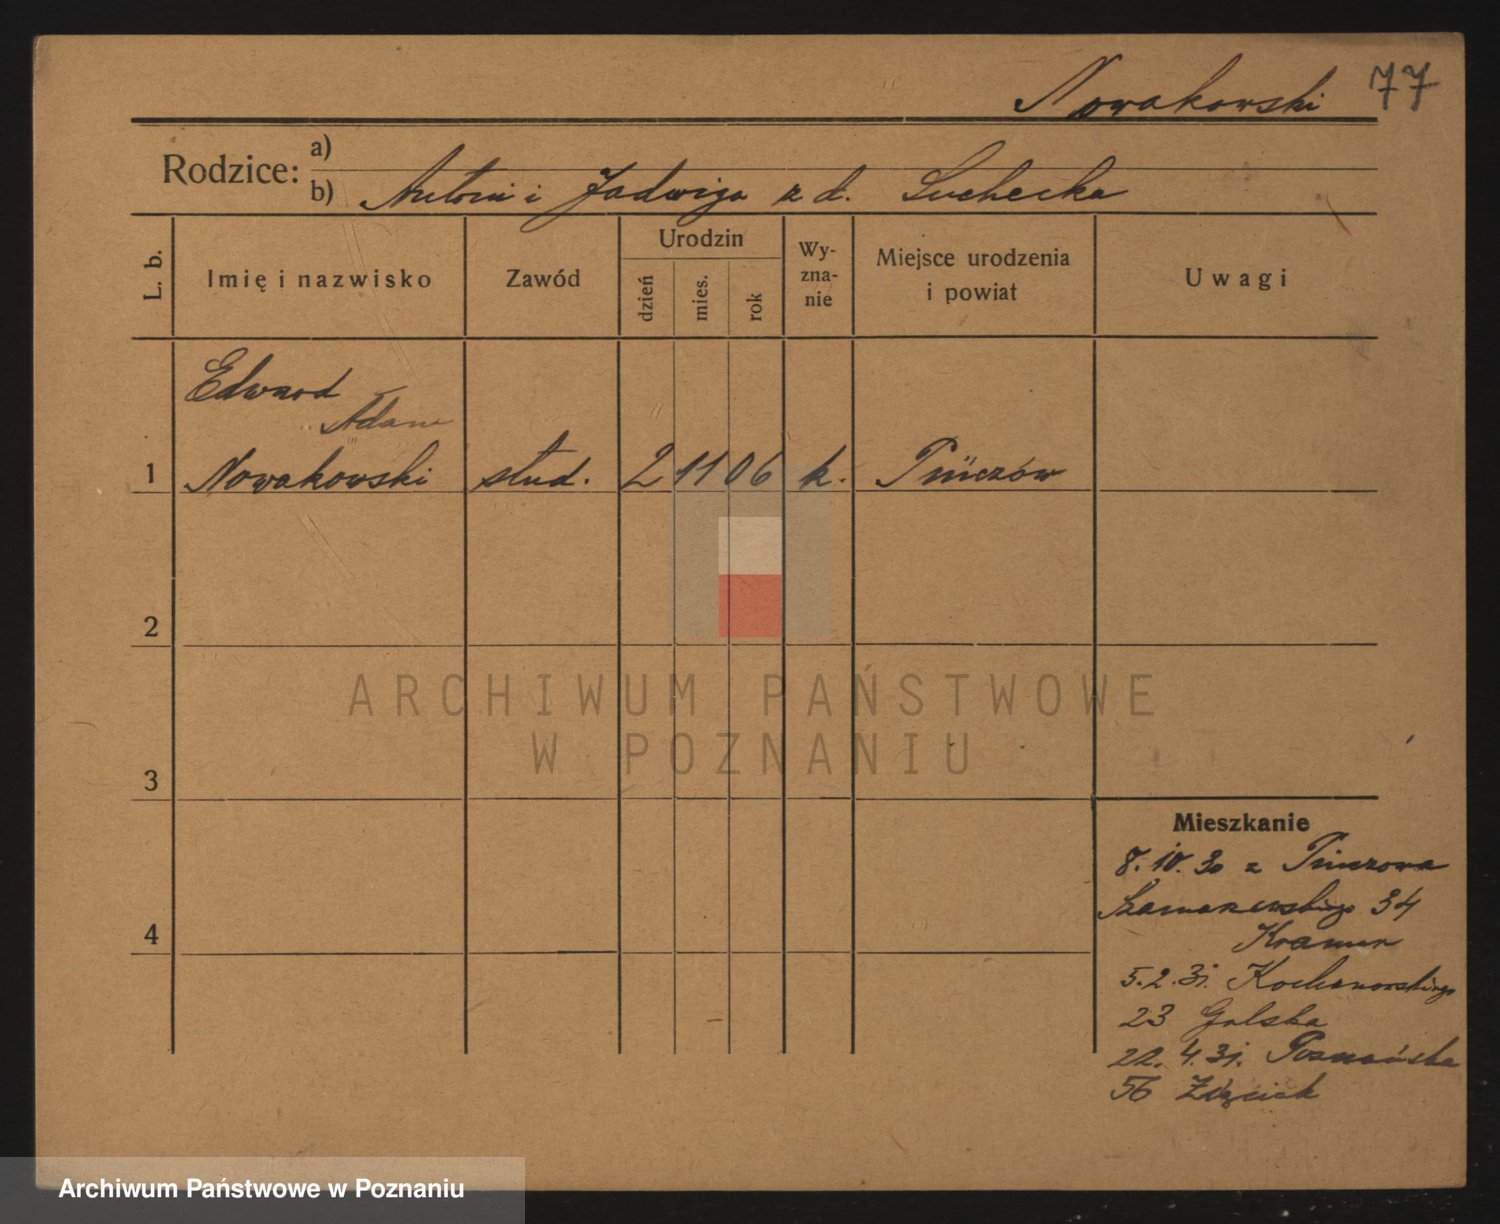 Nowakowski 77
Rodzice: a)
b) Antoni i Jadwiga z d. Suchecka
L. b.
Imię i nazwisko
Zawód
Urodzin
dzień
mies.
rok
Wy-
zna-
nie
Miejsce urodzenia
i powiat
Uwagi
Edward
Adam
1 Nowakowski stud. 2 11 06 k. Pińczów
2
ARCHIWUM PAŃSTWOWE
W POZNANIU
3
Mieszkanie
8.10.30 z Pińczowa
Szamarzewskiego 34
4
5.2.31. Kochanowskiego
23 Golska
22.4.31. Poznańska
56
Archiwum Państwowe w Poznaniu